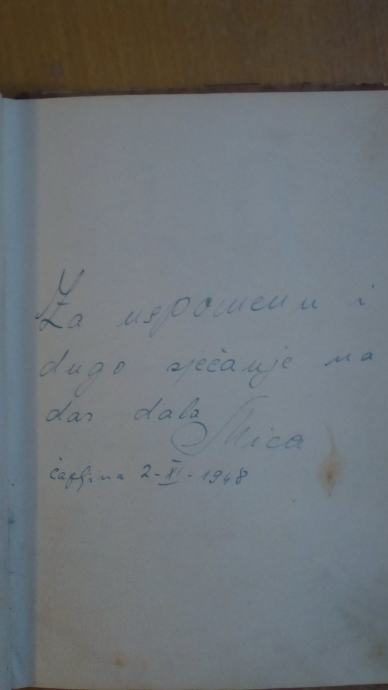 Za uspomenu i
dugo sjećanje na
dar dala
Mica
Čapljina 2-XI-1948